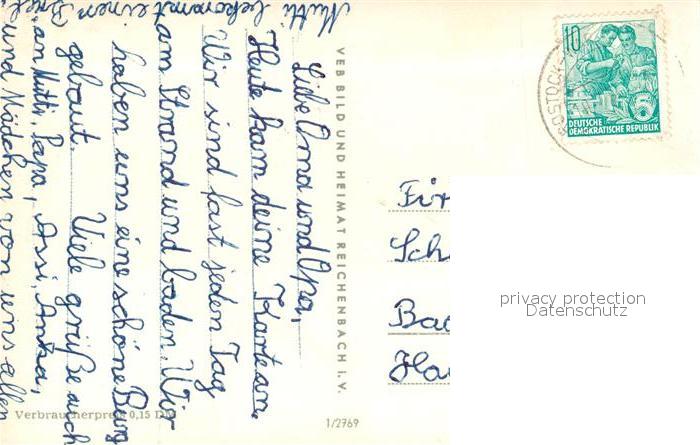 Liebe Oma und Opa,
Heute kam deine Karte an.
Wir sind fast jeden Tag
am Strand und baden. Wir
haben uns eine schöne Burg
gebaut. Viele grüße auch
an Mutti, Papa, Assi,
und Mädchen von uns allen
Mutti bekommt einen Brief.
VEB BILD UND HEIMAT REICHENBACH i. V.
Verbraucherpreis 0,15 DM
1/2769
10
5
DEUTSCHE
DEMOKRATISCHE REPUBLIK
ROSTOCK
Für
Sch
Bad
Ha
privacy protection
Datenschutz